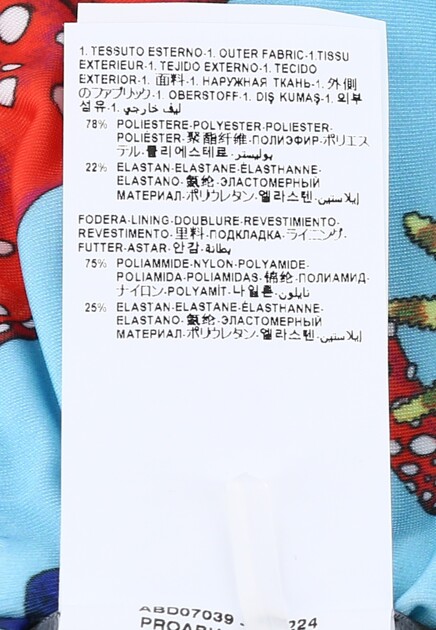 1. TESSUTO ESTERNO·1. OUTER FABRIC·1.TISSU
EXTERIEUR·1. TEJIDO EXTERNO·1. TECIDO
EXTERIOR·1. 面料·1. НАРУЖНАЯ ТКАНЬ·1. 外側
のファブリック·1. OBERSTOFF·1. DIŞ KUMAŞ·1. 외부
섬유·1. ليف خارجي
78% POLIESTERE·POLYESTER·POLIESTER·
POLIÉSTER·聚酯纤维·ПОЛИЭФИР·ポリエス
テル·폴리에스테르·بوليستر
22% ELASTAN·ELASTANE·ÉLASTHANNE·
ELASTANO·氨纶·ЭЛАСТОМЕРНЫЙ
МАТЕРИАЛ·ポリウレタン·엘라스텐·إيلاستين
FODERA·LINING·DOUBLURE·REVESTIMIENTO·
REVESTIMENTO·里料·ПОДКЛАДКА·ライニング·
FUTTER·ASTAR·안감·بطانة
75% POLIAMMIDE·NYLON·POLYAMIDE·
POLIAMIDA·POLIAMIDAS·锦纶·ПОЛИАМИД·
ナイロン·POLYAMİT·나일론·نايلون
25% ELASTAN·ELASTANE·ÉLASTHANNE·
ELASTANO·氨纶·ЭЛАСТОМЕРНЫЙ
МАТЕРИАЛ·ポリウレタン·엘라스텐·إيلاستين
ABD07039 - 224